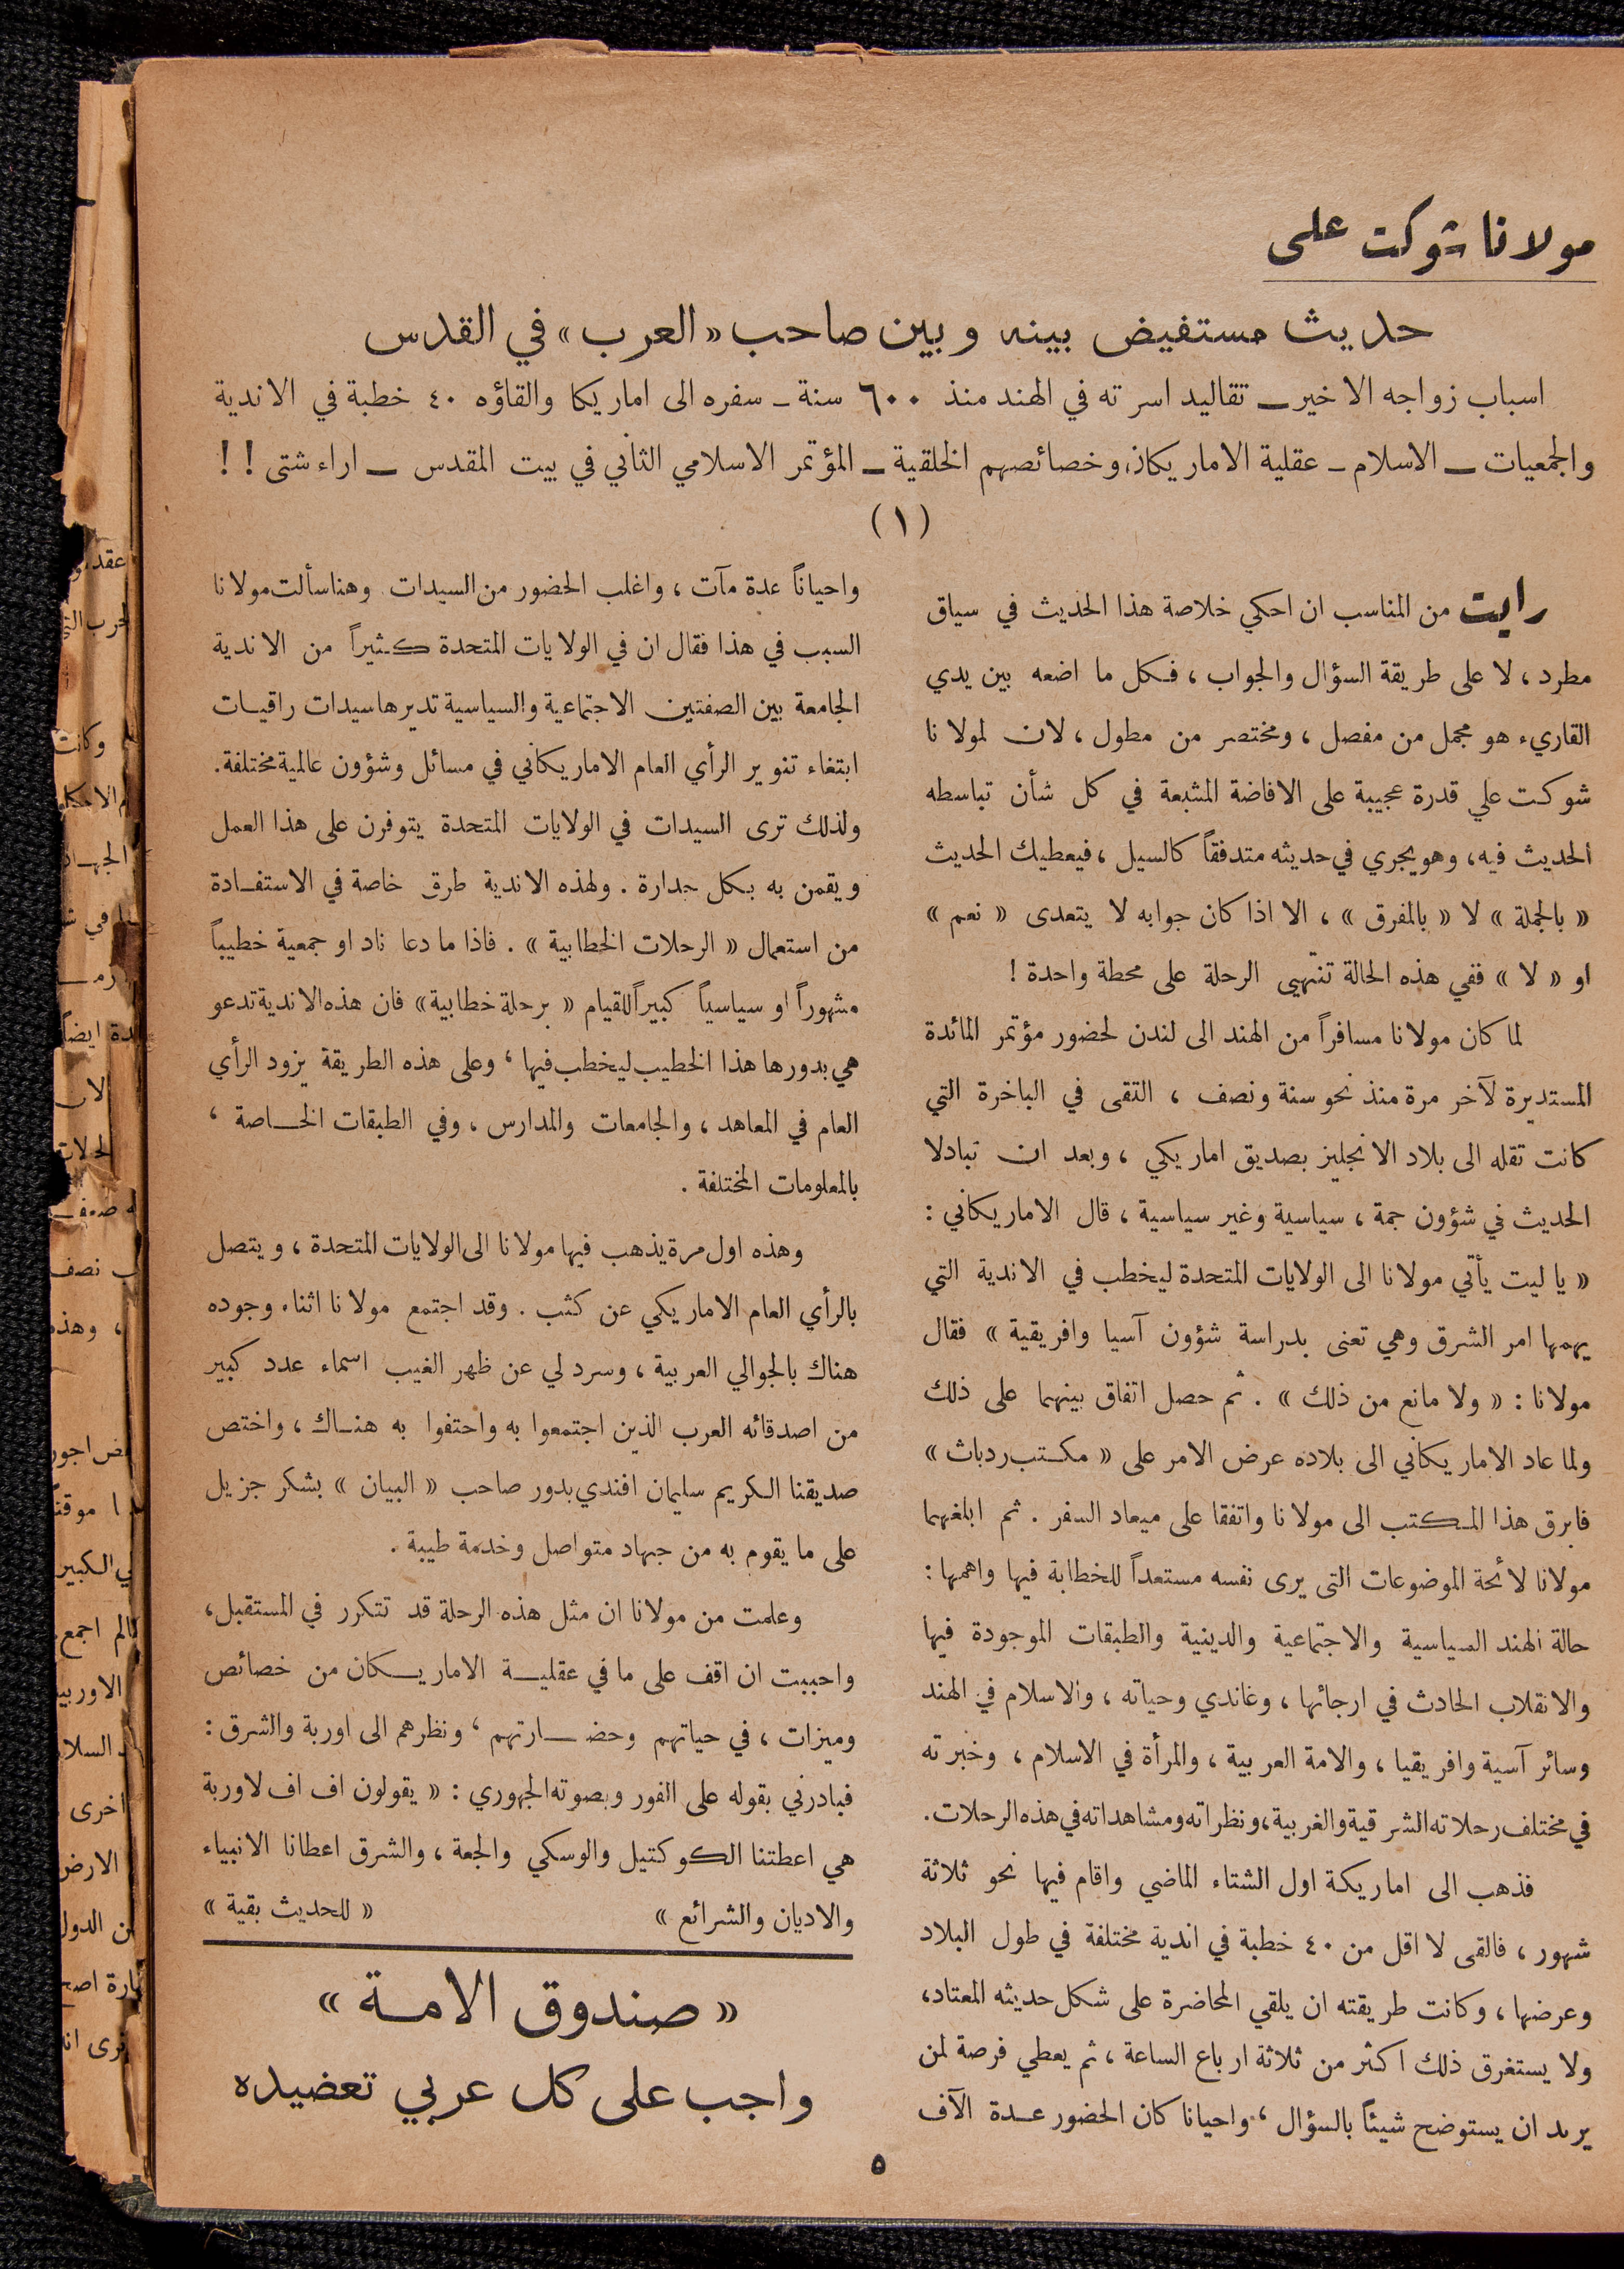 مولانا شوكت على
حديث مستفيض بينه وبين صاحب «العرب» في القدس
اسباب زواجه الاخير ــ تقاليد اسرته في الهند منذ ٦٠٠ سنة ـ سفره الى اماريكا والقاؤه ٤٠ خطبة في الاندية
والجمعيات ــ الاسلام ـ عقلية الاماريكان وخصائصهم الخلقية ـ المؤتمر الاسلامي الثاني في بيت المقدس ــ اراء شتى ! !
(١)
رايت من المناسب ان احكي خلاصة هذا الحديث في سياق
مطرد ، لا على طريقة السؤال والجواب ، فكل ما اضعه بين يدي
القاريء هو مجمل من مفصل ، ومختصر من مطول ، لان لمولانا
شوكت علي قدرة عجيبة على الافاضة المشبعة في كل شأن تباسطه
الحديث فيه ، وهو يجري في حديثه متدفقاً كالسيل ، فيعطيك الحديث
« بالجملة » لا « بالمفرق » ، الا اذا كان جوابه لا يتعدى « نعم »
او « لا » ففي هذه الحالة تنتهي الرحلة على محطة واحدة !
لما كان مولانا مسافراً من الهند الى لندن لحضور مؤتمر المائدة
المستديرة لآخر مرة منذ نحو سنة ونصف ، التقى في الباخرة التي
كانت تقله الى بلاد الانجليز بصديق اماريكي ، وبعد ان تبادلا
الحديث في شؤون جمة ، سياسية وغير سياسية ، قال الاماريكاني :
« يا ليت يأتي مولانا الى الولايات المتحدة ليخطب في الاندية التي
يهمها امر الشرق وهي تعنى بدراسة شؤون آسيا وافريقية » فقال
مولانا : « ولا مانع من ذلك » . ثم حصل اتفاق بينهما على ذلك
ولما عاد الاماريكاني الى بلاده عرض الامر على « مكتب ردباث »
فابرق هذا المكتب الى مولانا واتفقا على ميعاد السفر . ثم ابلغهما
مولانا لائحة الموضوعات التي يرى نفسه مستعداً للخطابة فيها واهمها :
حالة الهند السياسية والاجتماعية والدينية والطبقات الموجودة فيها
والانقلاب الحادث في ارجائها ، وغاندي وحياته ، والاسلام في الهند
وسائر آسية وافريقيا ، والامة العربية ، والمرأة في الاسلام ، وخبرته
في مختلف رحلاته الشرقية والغربية، ونظراته ومشاهداته في هذه الرحلات.
فذهب الى اماريكة اول الشتاء الماضي واقام فيها نحو ثلاثة
شهور ، فالقى لا اقل من ٤٠ خطبة في اندية مختلفة في طول البلاد
وعرضها ، وكانت طريقته ان يلقي المحاضرة على شكل حديثه المعتاد،
ولا يستغرق ذلك اكثر من ثلاثة ارباع الساعة ، ثم يعطي فرصة لمن
يريد ان يستوضح شيئاً بالسؤال ، واحيانا كان الحضور عدة الآف
واحياناً عدة مآت ، واغلب الحضور من السيدات وهنا سألت مولانا
السبب في هذا فقال ان في الولايات المتحدة كثيراً من الاندية
الجامعة بين الصفتين الاجتماعية والسياسية تديرها سيدات راقيات
ابتغاء تنوير الرأي العام الاماريكاني في مسائل وشؤون عالمية مختلفة.
ولذلك ترى السيدات في الولايات المتحدة يتوفرن على هذا العمل
ويقمن به بكل جدارة . ولهذه الاندية طرق خاصة في الاستفادة
من استعمال « الرحلات الخطابية » . فاذا ما دعا ناد او جمعية خطيباً
مشهوراً او سياسياً كبيراً للقيام « برحلة خطابية» فان هذه الاندية تدعو
هي بدورها هذا الخطيب ليخطب فيها ، وعلى هذه الطريقة يزود الرأي
العام في المعاهد ، والجامعات والمدارس ، وفي الطبقات الخاصة ،
بالمعلومات المختلفة .
وهذه اول مرة يذهب فيها مولانا الى الولايات المتحدة ، ويتصل
بالرأي العام الاماريكي عن كثب . وقد اجتمع مولانا اثناء وجوده
هناك بالجوالي العربية ، وسرد لي عن ظهر الغيب اسماء عدد كبير
من اصدقائه العرب الذين اجتمعوا به واحتفوا به هناك ، واختص
صديقنا الكريم سليمان افندي بدور صاحب « البيان » بشكر جزيل
على ما يقوم به من جهاد متواصل وخدمة طيبة .
وعلمت من مولانا ان مثل هذه الرحلة قد تتكرر في المستقبل ،
واحببت ان اقف على ما في عقلية الاماريكان من خصائص
وميزات ، في حياتهم وحضارتهم ، ونظرهم الى اوربة والشرق :
فبادرني بقوله على الفور وبصوته الجهوري : « يقولون اف اف لاوربة
هي اعطتنا الكوكتيل والوسكي والجعة ، والشرق اعطانا الانبياء
والاديان والشرائع » « للحديث بقية »
« صندوق الامة »
واجب على كل عربي تعضيده
٥